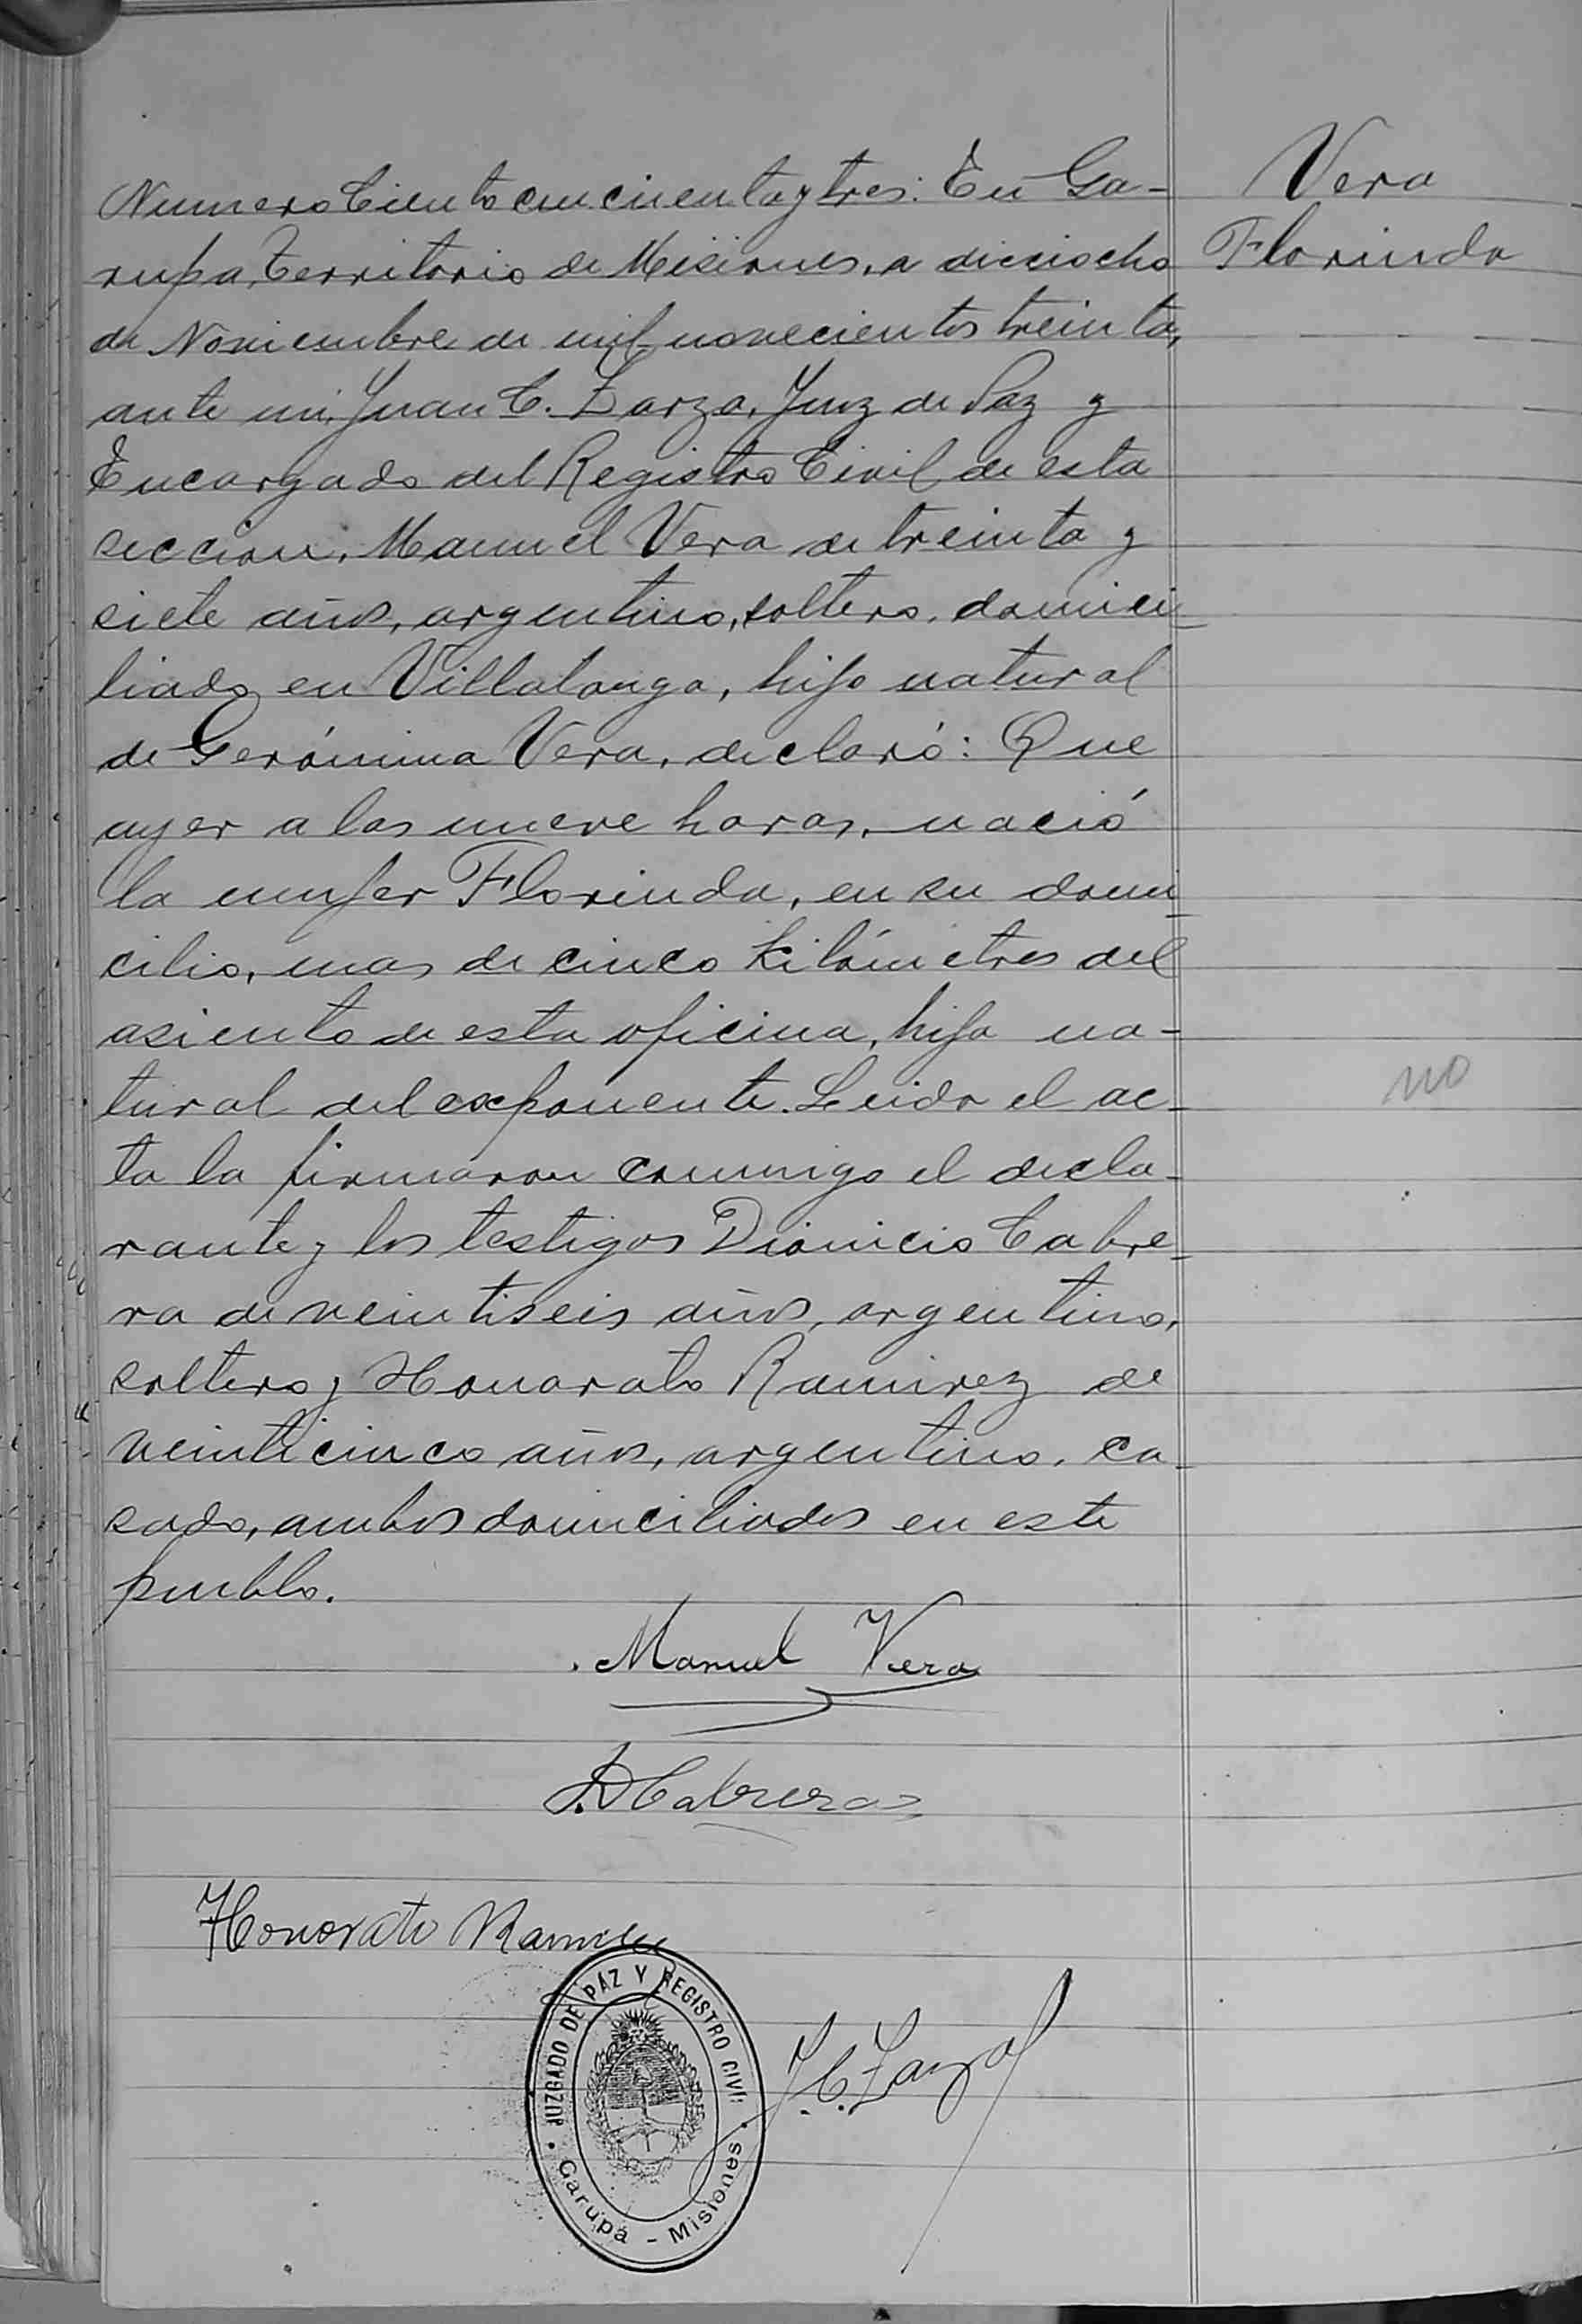 Numero Ciento cincuenta y tres: En Ga-
rupa, Territorio de Misiones, a dieciocho
de Noviembre de mil novecientos treinta,
ante mi, Juan C. Zarza, Juez de Paz y
Encargado del Registro Civil de esta
seccion, Manuel Vera de treinta y
siete años, argentino, soltero, domici-
liado en Villalonga, hijo natural
de Gerónima Vera, declaró: Que
ayer a las nueve horas, nació
la mujer Florinda, en su domi-
cilio, mas de cinco kilómetros del
asiento de esta oficina, hija na-
tural del exponente. Leida el ac-
ta la firmaron conmigo el decla-
rante y los testigos Dionicio Cabre-
ra de veintiseis años, argentino,
soltero y Honorato Ramirez de
veinticinco años, argentino, ca-
sado, ambos domiciliados en este
pueblo.
Vera
Florinda
no
Manuel Vera
D Cabrera
Honorato Ramirez
J. C. Zarza
JUZGADO DE PAZ Y REGISTRO CIVIL
Garupá - Misiones